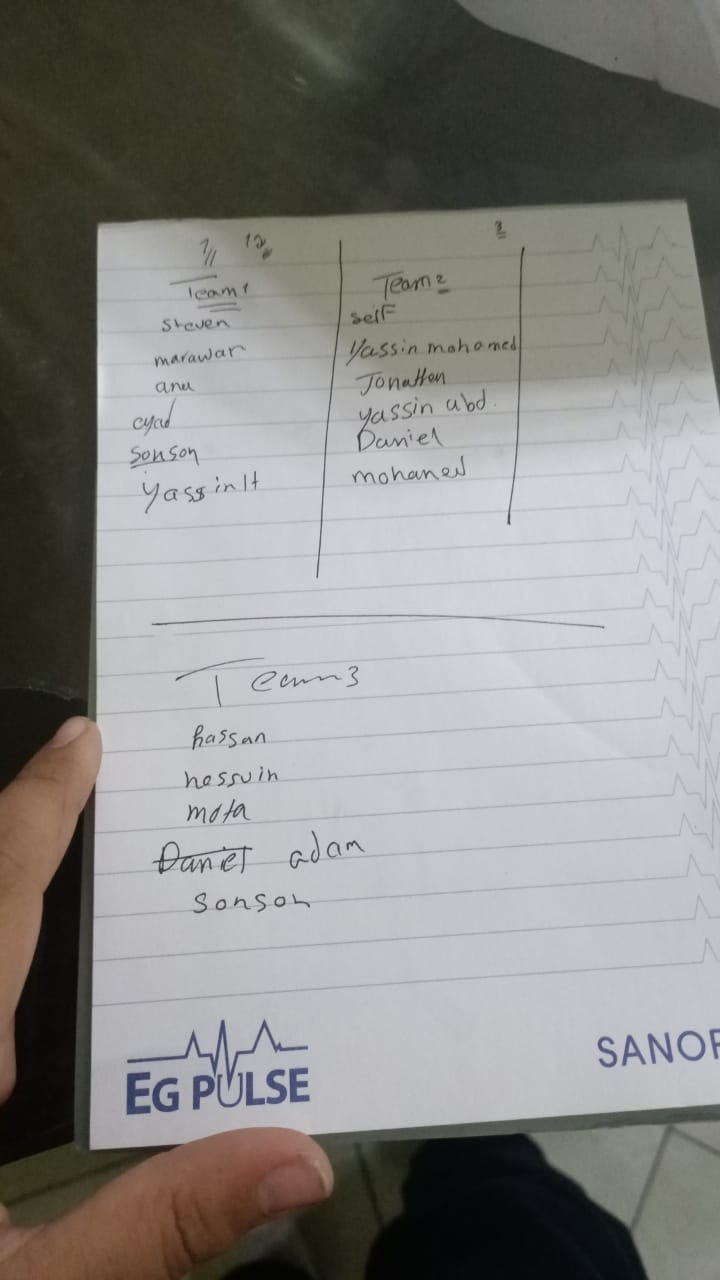 12
3
Team 1
steven
marawan
anu
eyad
sonson
Yassin H
Team 2
seif
Yassin mohamed
Jonatten
yassin abd.
Daniel
mohaned
Team 3
hassan
hossuin
mota
Daniel adam
Sonson
EG PULSE
SANOF